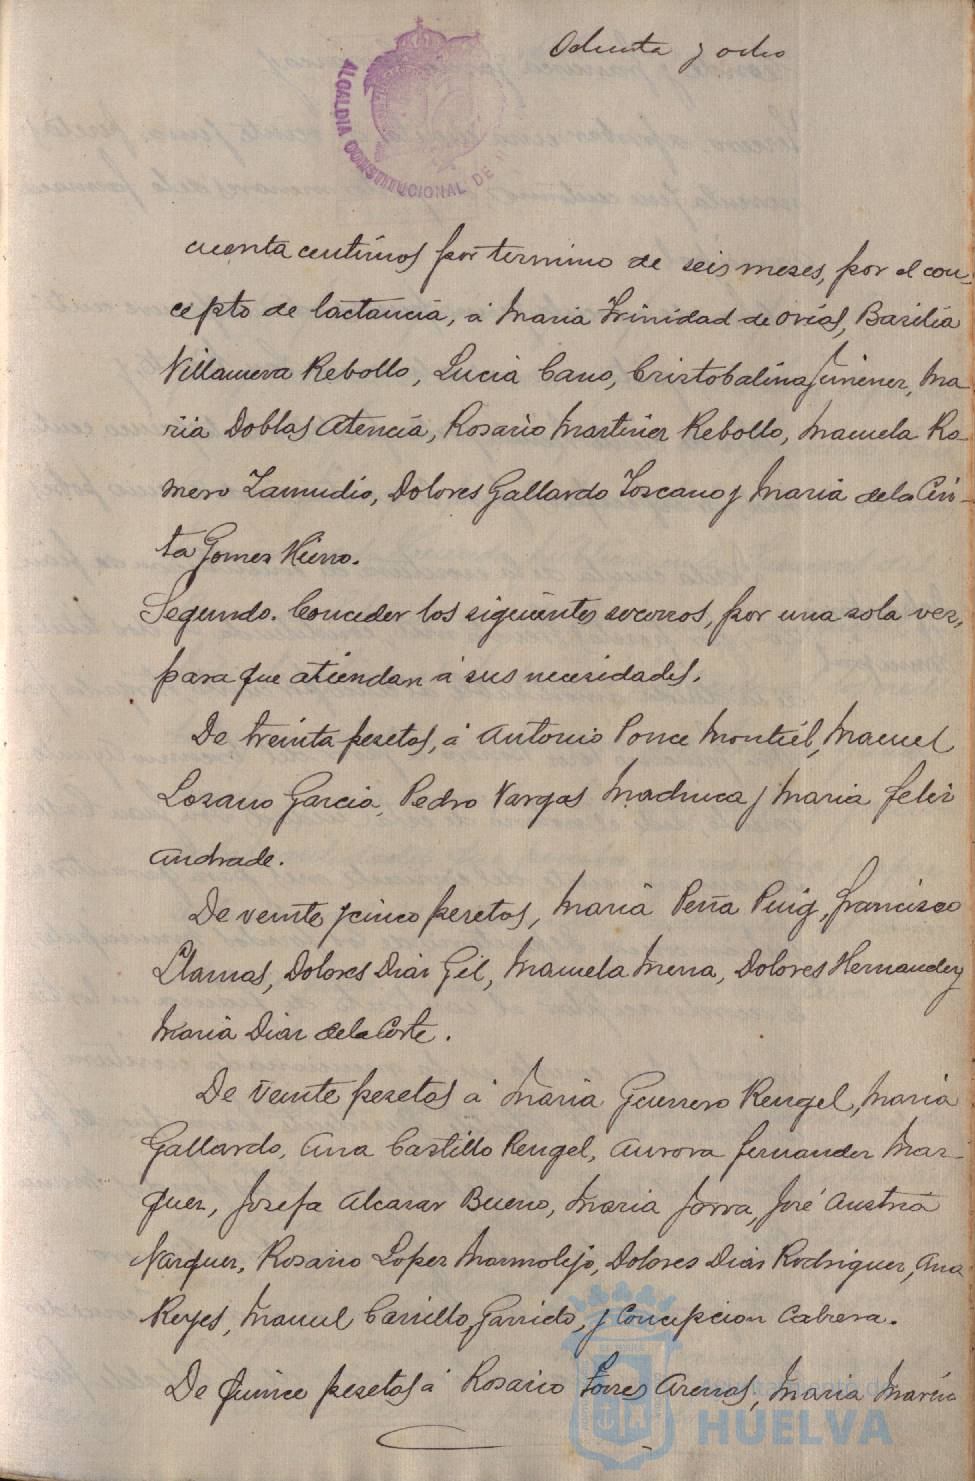 Ochenta y ocho
ALCALDIA CONSTITUCIONAL DE
cuenta centimos por termino de seis meses, por el con-
cepto de lactancia, á Maria Trinidad de Orias, Basilia
Villanueva Rebollo, Lucia Cano, Cristobalina Jimenez, Ma
ria Doblas Atencia, Rosario Martinez Rebollo, Manuela Ro-
mero Zamudio, Dolores Gallardo Toscano y Maria de la Cin-
ta Gomez Hierro.
Segundo. Conceder los siguientes socorros, por una sola vez,
para que atiendan á sus necesidades.
De treinta pesetas, á Antonio Ponce Montiel, Manuel
Lozano Garcia, Pedro Vargas y Maria Feliz
Andrade.
De veinte y cinco pesetas, Maria Peña Puig, Francisco
Llamas, Dolores Diaz Gil, Manuela Mena, Dolores Hernandez y
Maria Diaz de la Corte.
De veinte pesetas á Maria Guerrero Rengel, Maria
Gallardo, Ana Castillo Rengel, Aurora Fernandez Mar-
quez, Josefa Alcazar Bueno, Maria Parra, José Austria
Narquez, Rosario Lopez Marmolejo, Dolores Diaz Rodriguez, Ana
Reyes, Manuel Carrillo Garrido, y Concepcion Cabrera.
De quince pesetas á Rosario Torres Arenas, Maria Marin
Ayuntamiento de
HUELVA